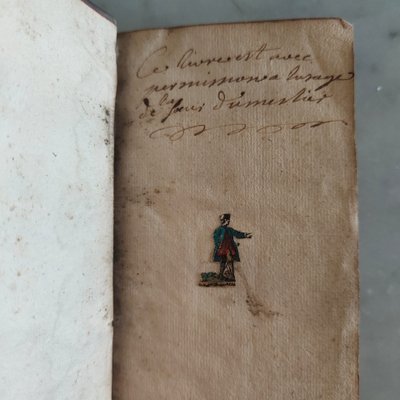 Ce livre est avec
permission a lusage
de la seur dumestier